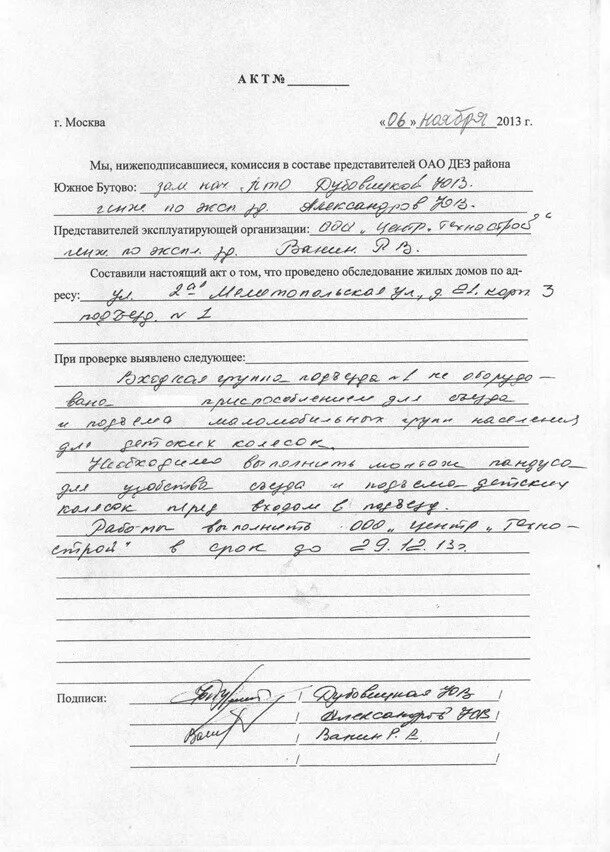 АКТ №
г. Москва «06» ноября 2013 г.
Мы, нижеподписавшиеся, комиссия в составе представителей ОАО ДЕЗ района
Южное Бутово: зам нач. ПТО Дубовицков Ю.В.
инж по эксп зд. Александров Ю.В.
Представителей эксплуатирующей организации: ООО „Центр „Технострой"
инж. по экспл. зд. Ванин Р В.
Составили настоящий акт о том, что проведено обследование жилых домов по ад-
ресу: ул. 2ая Мелитопольская ул, д. 21. корп. 3
подъезд. n 1
При проверке выявлено следующее:
Входная группа подъезда №1 не оборудо-
вано приспособлением для съезда
и подъема маломобильных групп населения
для детских колесок.
Необходимо выполнить монтаж пандуса
для удобства съезда и подъема детских
колясок перед входом в подъезд.
Работы выполнить ООО „Центр „Техно-
строй" в срок до 29.12.13г.
Подписи: / Дубовицкая Ю.В. /
/ Александров Ю.В /
/ Ванин Р. В. /
/ /